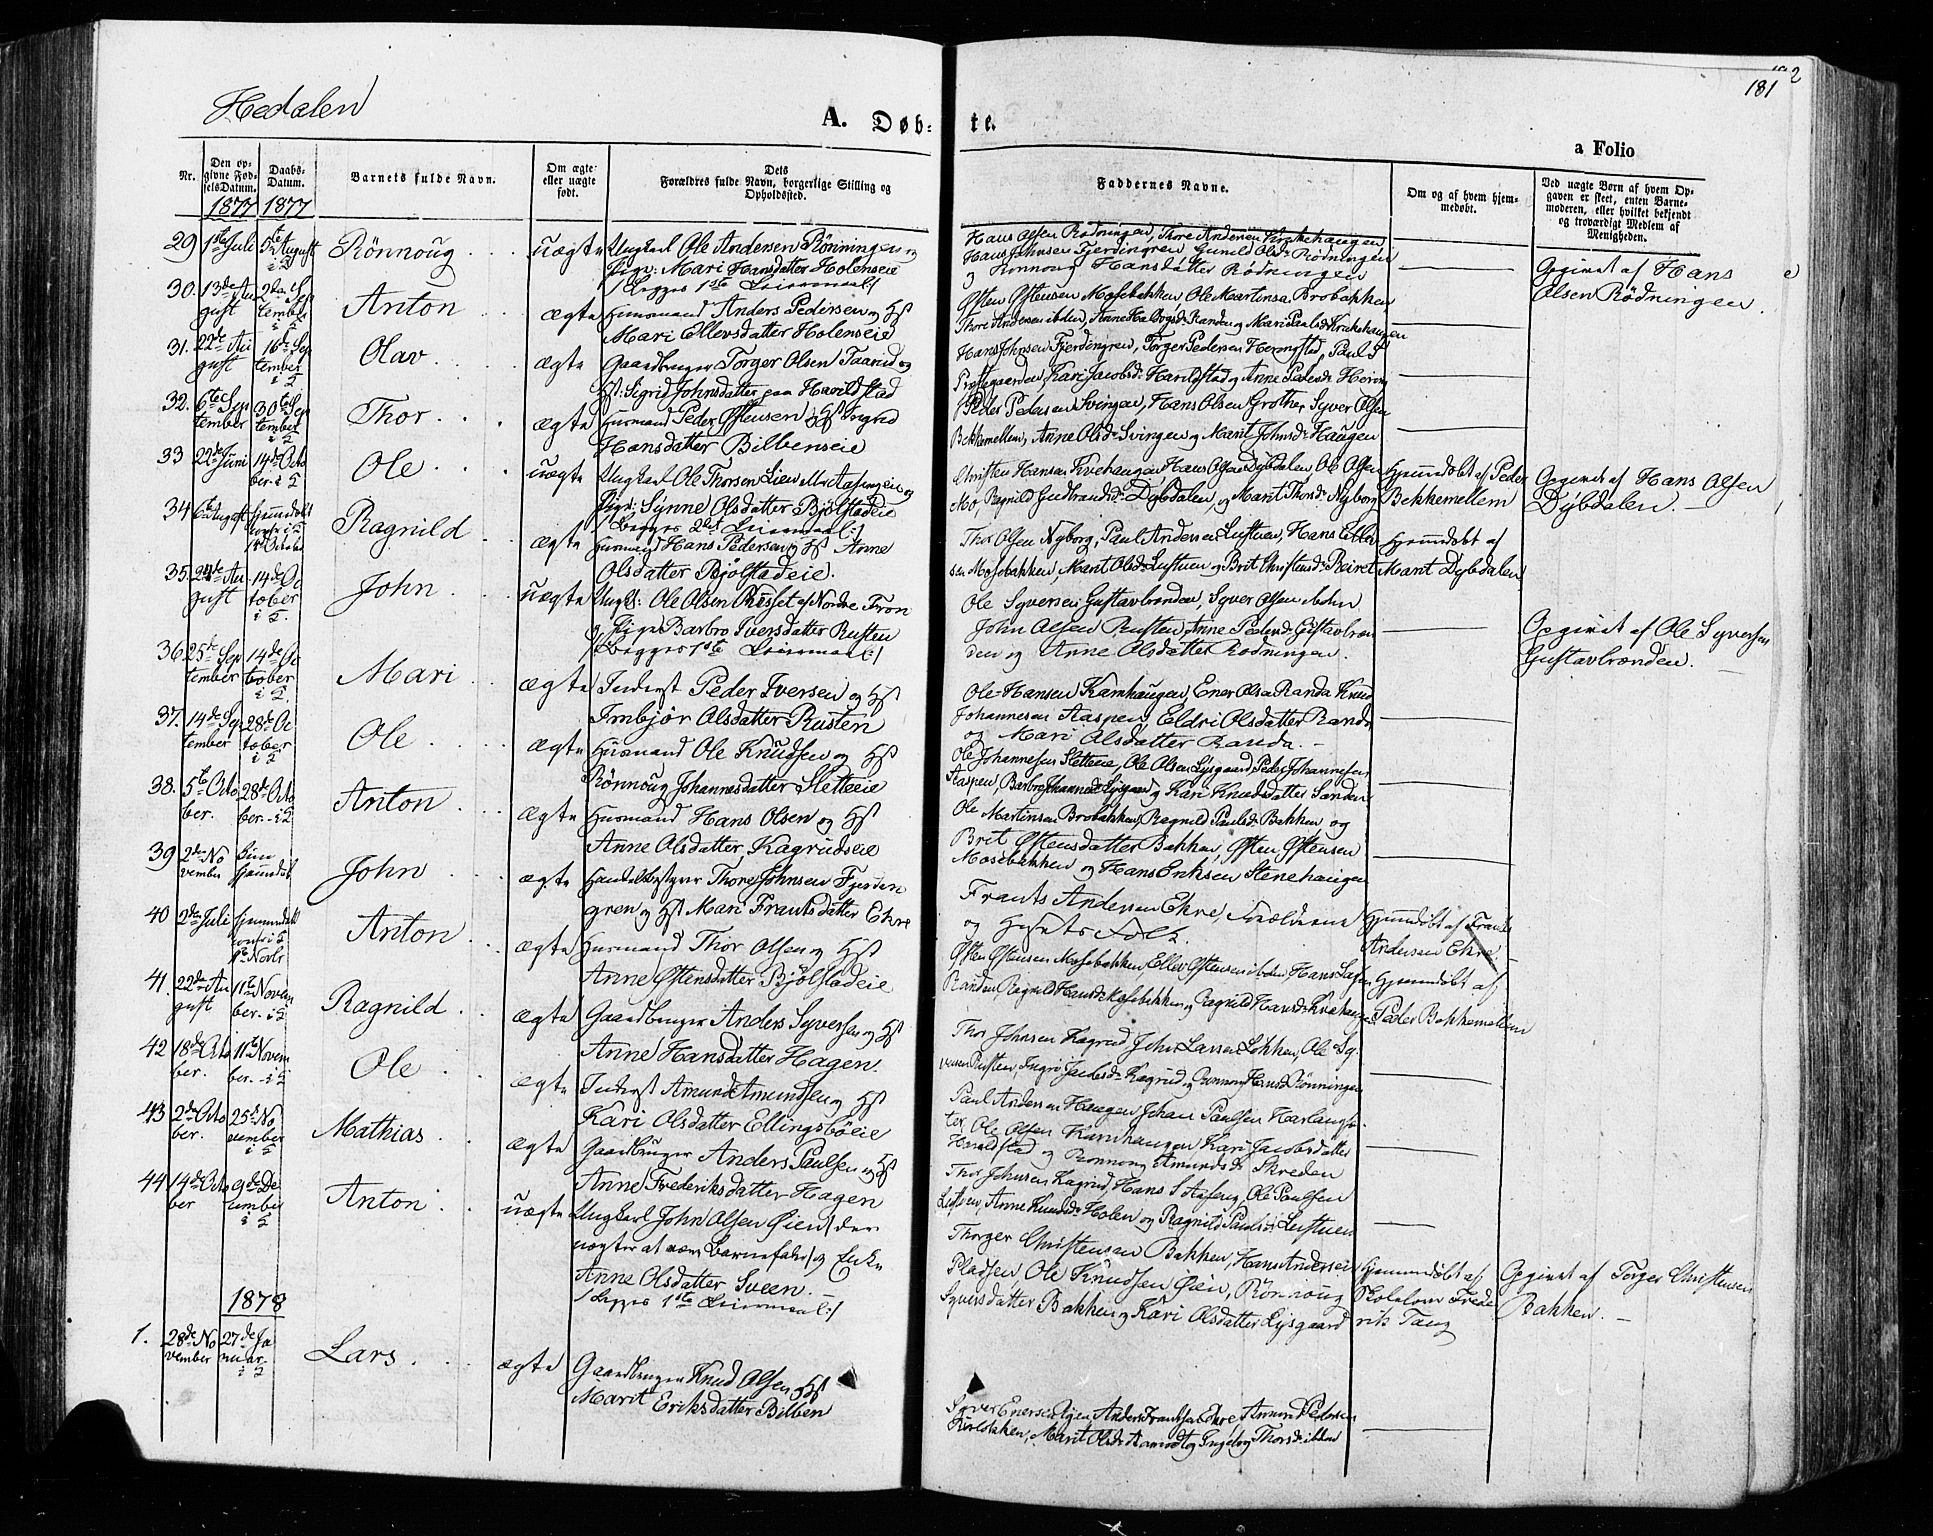 Hedalen
A. Døb-
te.
a Folio
181
Nr.
Den op-
givne Fød-
selsDatum.
1877
Daabs-
Datum.
1877
Barnets fulde Navn.
Om ægte
eller uægte
født.
Dets
Forældres fulde Navn, borgerlige Stilling og
Opholdssted.
Faddernes Navne.
Om og af hvem hjem-
medøbt.
Ved uægte Børn af hvem Op-
gaven er skeet, enten Barne-
moderen, eller hvilket bekjendt
og troværdigt Medlem af
Menigheden.
29 1ste Juli 5te August Rönnoug uægte Ungkarl Ole Andersen Rönningen og
Pige: Mari Hansdatter Holenseie
/: Begges 1ste Leiermaal :/
Hans Olsen Rödningen, Thore Andersen Krukehaugen
Hans Johnsen Fjerdingren, Gunild Olsd. Rödningen
og Rönnoug Hansdatter Rödningen
Opgivet af Hans
Olsen Rödningen
30. 13de August 2den September Anton ægte Husmand Anders Pedersen og Hst
Mari Ellevsdatter Holenseie
Østen Østensen Mosebakken, Ole Martinsen Brobakken
Thore Andersen ibden, Randen og Mari Paulsd. Krukehaugen
31. 22de August 16de September Olav ægte Gaardbruger Torger Olsen Taarud og
Hst: Sigrid Johnsdatter paa Harildstad
Hans Johnsen Fjerdingren, Torger Pedersen Heringstad, Paul
Præstegaarden, Kari Jacobsd. Harildstad og Anne Pedersd.
32. 6te September 30te September Thor ægte Husmand Peder Østensen og Hst Ingrid
Hansdatter Bilbenseie
Peder Pedersen Svingen, Hans Olsen Grothe, Syver Olsen
Bekkemellem, Anne Olsd. Svingen og Marit Johnsd. Haugen
33 22de Juni 14de October Ole uægte Ungkarl Ole Thorsen Lien og
Pige: Synne Olsdatter Bjölstadeie
/: Begges 2det Leiermaal :/
Christen Hansen Kvehaugen, Hans Olsen Dybdalen, Ole Olsen
Mo, Ragnild Gudbrandsd. Dybdalen, og Marit Thorsd. Nyborg
Hjemmedöbt af Peder
Bekkemellem
Opgivet af Hans Olsen
Dybdalen.
34 August Hjemmedöbt Ragnild ægte Husmand Hans Pedersen og Hst Anne
Olsdatter Bjölstadeie.
Thor Olsen Nyborg, Paul Andersen Lustuen, Hans Ellev-
sen Mosebakken, Marit Olsd. Lustuen og Brit Christensd. Beiret
Hjemmedöbt af
Marit Dybdalen
35. 24de August 14de October John uægte Ungk: Ole Olsen Russet af Nordre Fron
og Pige Barbro Iversdatter Rusten
/: Begges 1ste Leiermaal :/
Ole Syversen Gustavbrænden, Syver Olsen ibden
John Olsen Rusten, Anne Pedersd. Gustavbræn-
den og Anne Olsdatter Rödningen.
Opgivet af Ole Syversen
Gustavbrænden.
36 25de September 14de October Mari ægte Inderst Peder Iversen og Hst
Imbjör Olsdatter Rusten
Ole Hansen Kamhaugen, Ener Olsen Randa, Knud
Johannesen Aaspen, Eldri Olsdatter Randa
og Mari Olsdatter Randa.
37. 14de September 28de October Ole ægte Husmand Ole Knudsen og Hst
Rönnoug Johannesdatter Sletteeie
Ole Johannesen Sletteeie, Ole Olsen Lysgaard, Peder Johannesen
Aaspen, Barbro Johannesd. Lysgaard og Kari Knudsdatter Sanden
38. 5te October 28de October Anton ægte Husmand Hans Olsen og Hst
Anne Olsdatter Kagrudseie
Ole Martinsen Brobakken, Ragnild Paulsd. Bakken og
Brit Østensdatter Bakken, Østen Østensen
Mosebakken og Hans Eriksen Stenehaugen
39 2den November hjemmedöbt John ægte Handelsbestyrer Thore Johnsen Fjerdin-
gren og Hst Mari Frantsdatter Ekre
Frants Andersen Ekre, Forældrene
og Husets Folk.
Hjemmedöbt af Frants
Andersen Ekre.
40 2den Juli Hjemmedöbt Anton ægte Husmand Thor Olsen og Hst
Anne Østensdatter Bjölstadeie
Østen Østensen Mosebakken, Ellev Østensen ibden, Hans Larsen
Randen, Ragnild Hansd. Mosebakken og Ragnild Hansd. Krukehaugen
Hjemmedöbt af
Peder Bekkemellem
41. 22de August 11te November Ragnild ægte Gaardbruger Anders Syversen og Hst
Anne Hansdatter Hagen.
Thor Johnsen Kagrud, John Larsen Løkken, Ole Sy-
versen Rusten, Ingri Jacobsd. Kagrud og Rönnoug Hansd. Rönningen
42 18de October 11te November Ole ægte Inderst Amund Amundsen og Hst
Kari Olsdatter Ellingsböeie
Paul Andersen Haugen, Johan Paulsen Harlaugs-
ter, Ole Olsen Kamhaugen, Kari Jacobsdatter
Harildstad og Rönnoug Amundsd. Skreden
43 2den October 25de November Mathias ægte Gaardbruger Anders Paulsen og Hst
Anne Frederiksdatter Hagen
Thor Johnsen Kagrud, Hans S. Aaseng, Ole Paulsen
Lustuen, Anne Knudsd. Holen og Ragnild Paulsd. Lustuen
44 14de October 9de December Anton uægte Ungkarl John Olsen Øien / der
nægter at være Barnefader / og Enke
Anne Olsdatter Sveen.
/: Begges 1ste Leiermaal :/
Thorger Christensen Bakken, Hans Andersen
Pladsen, Ole Knudsen Øien, Rönnoug
Syversdatter Bakken og Kari Olsdatter Lysgaard
Hjemmedöbt af
Skolelærer Frede-
rik Tang
Opgivet af Torger Christensen
Bakken.
1878
1. 28de November 27de Januar Lars ægte Gaardbruger Knud Olsen og Hst
Marit Eriksdatter Bilben
Syver Enersen Øyen, Anders Frantsen Ekre, Amund Pedersen
Kirlökken, Marit Olsd. Aamodt og Ingeborg Thorsd. ibden